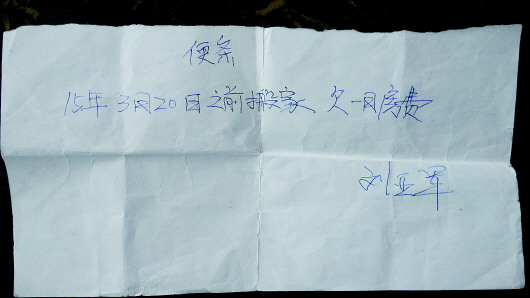 便条
15年3月20日之前搬家、欠一月房费
刘亚军